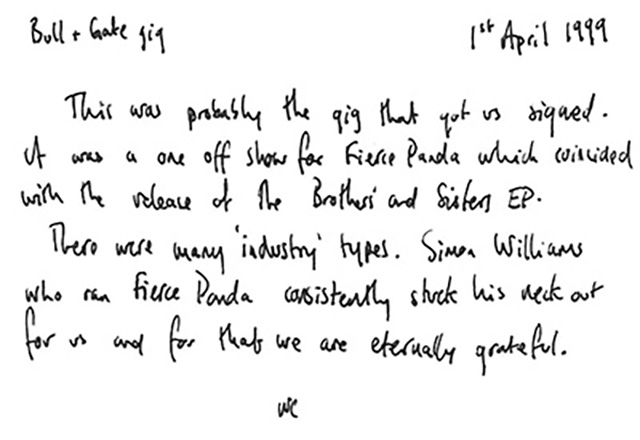 Bull + Gate gig 1st April 1999
This was probably the gig that got us signed.
It was a one off show for Fierce Panda which coincided
with the release of the Brothers' and Sisters EP.
There were many 'industry' types. Simon Williams
who ran Fierce Panda consistently stuck his neck out
for us and for that we are eternally grateful.
WC